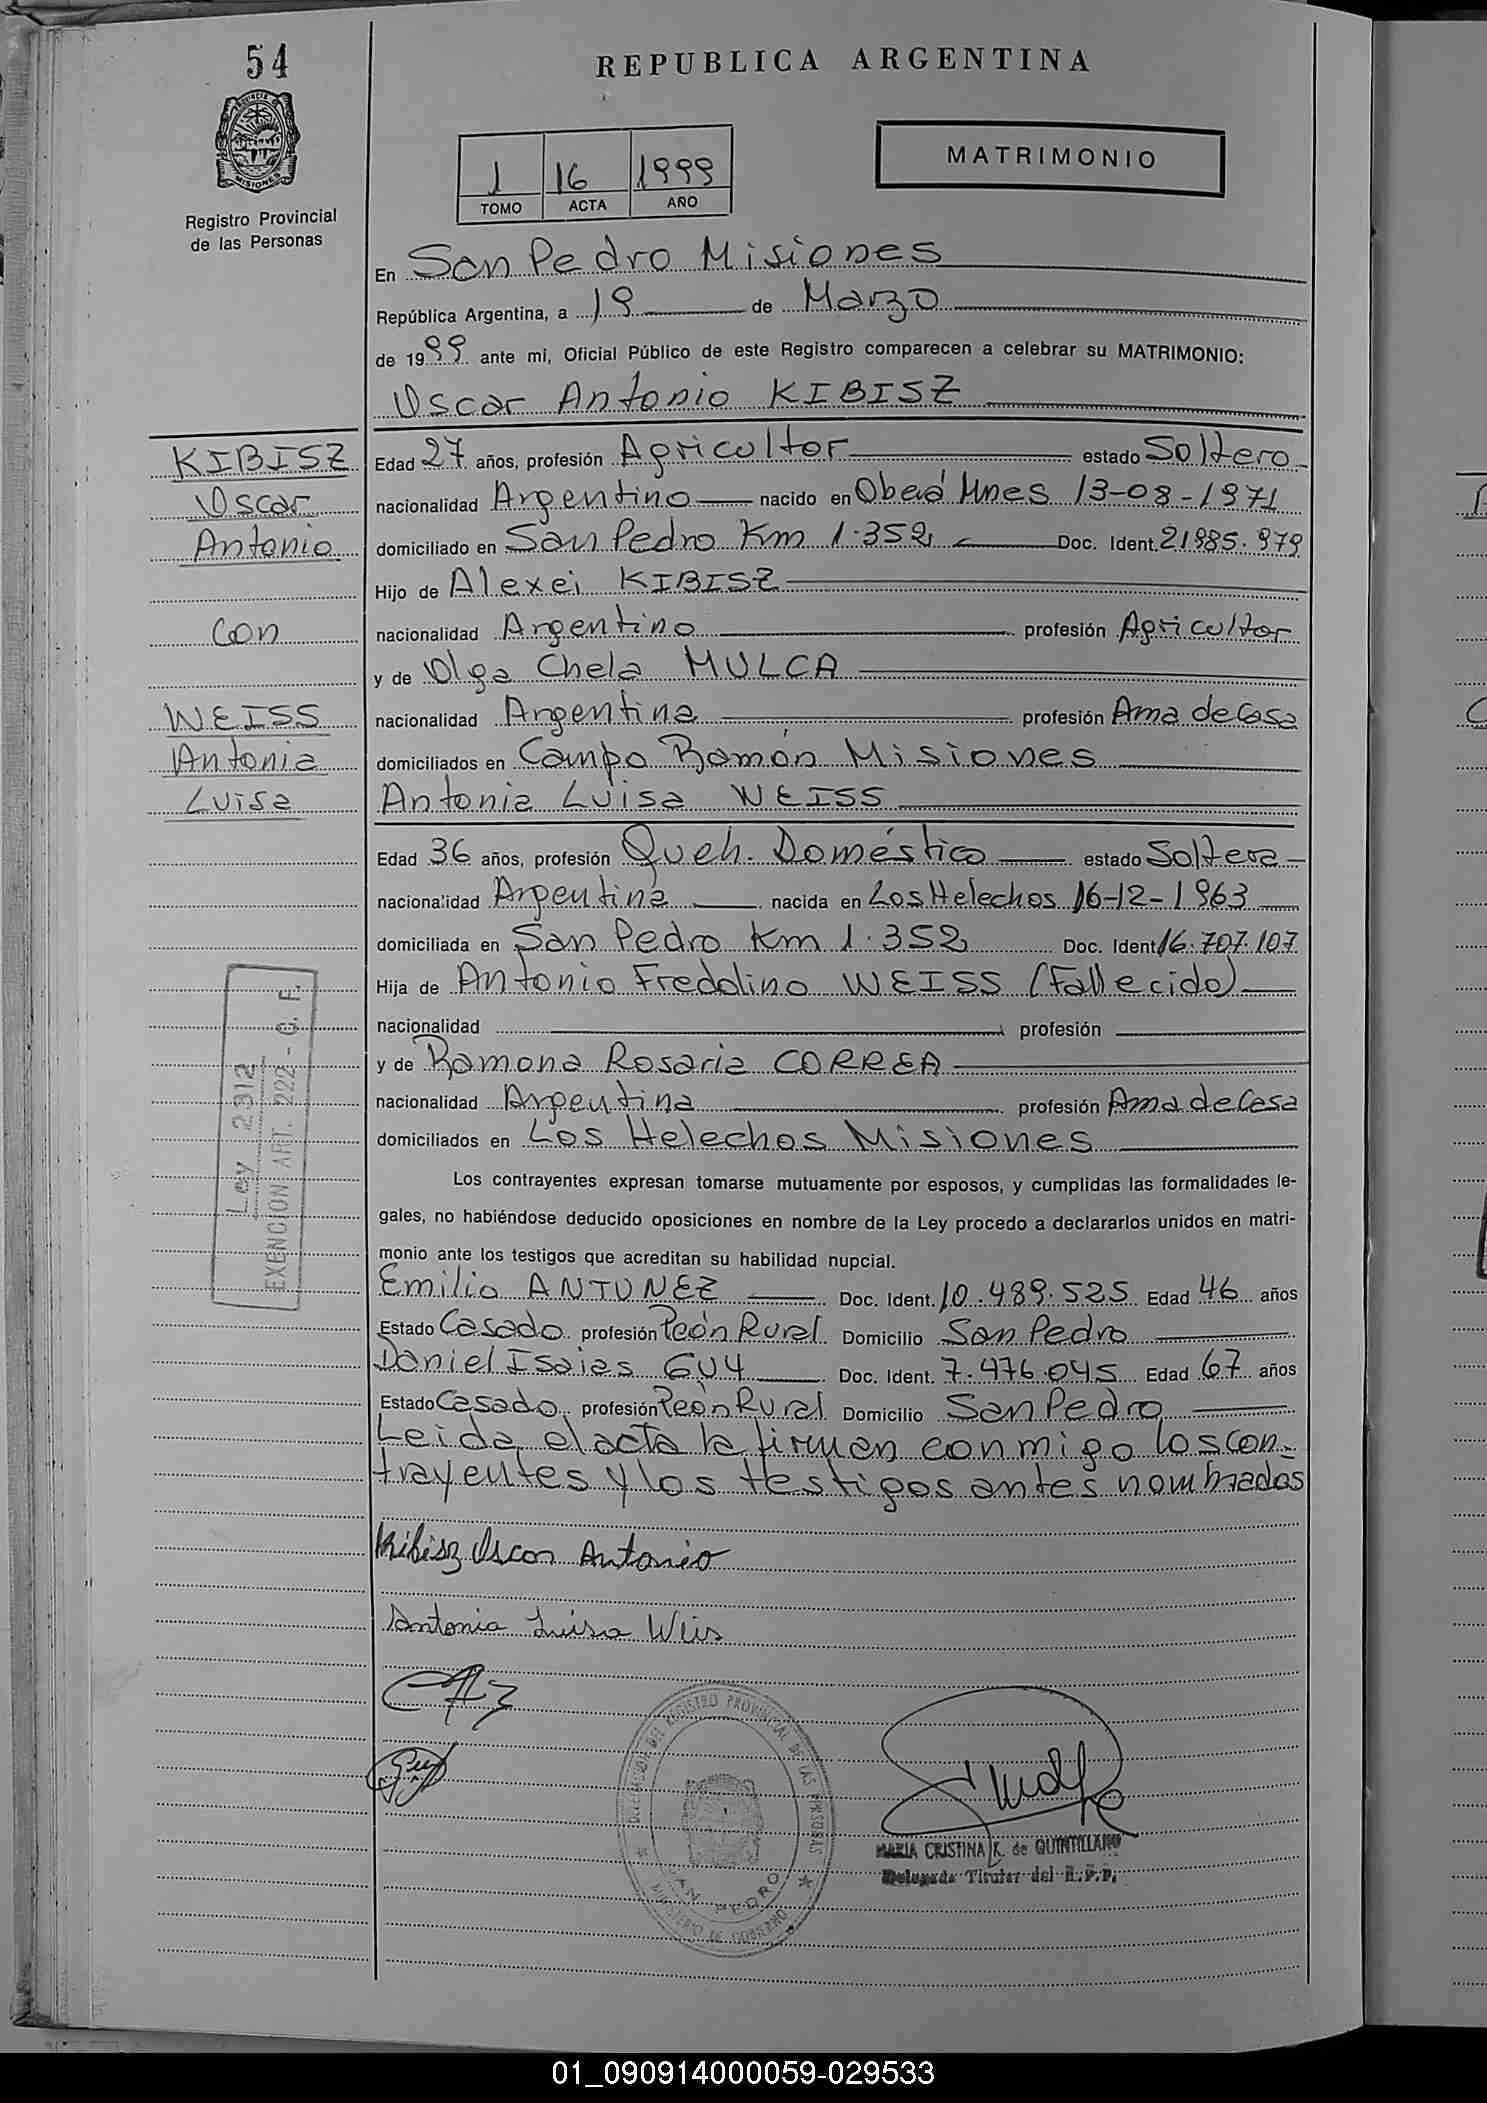 54
REPUBLICA ARGENTINA
PROVINCIA DE
MISIONES
Registro Provincial
de las Personas
1 16 1999
TOMO ACTA AÑO
MATRIMONIO
En San Pedro Misiones
República Argentina, a 19 de Marzo
de 1999 ante mi, Oficial Público de este Registro comparecen a celebrar su MATRIMONIO:
Oscar Antonio KIBISZ
KIBISZ
Oscar
Antonio
Con
WEISS
Antonia
Luisa
Edad 27 años, profesión Agricultor estado Soltero
nacionalidad Argentino nacido en Oberá Mnes 13-08-1971
domiciliado en San Pedro Km 1.352 Doc. Ident. 21985.979
Hijo de Alexei KIBISZ
nacionalidad Argentino profesión Agricultor
y de Olga Chela MULCA
nacionalidad Argentina profesión Ama de Casa
domiciliados en Campo Ramón Misiones
Antonia Luisa WEISS
Edad 36 años, profesión Queh. Doméstico estado Soltera
nacionalidad Argentina nacida en Los Helechos 16-12-1963
domiciliada en San Pedro Km 1.352 Doc. Ident 16.707.107
Hija de Antonio Freddlino WEISS (Fallecido)
nacionalidad profesión
y de Ramona Rosaria CORREA
nacionalidad Argentina profesión Ama de Casa
domiciliados en Los Helechos Misiones
Ley 2312
EXENCION ART. 222 - C. F.
Los contrayentes expresan tomarse mutuamente por esposos, y cumplidas las formalidades le-
gales, no habiéndose deducido oposiciones en nombre de la Ley procedo a declararlos unidos en matri-
monio ante los testigos que acreditan su habilidad nupcial.
Emilio ANTUNEZ Doc. Ident. 10.489.525 Edad 46 años
Estado Casado profesión Peón Rural Domicilio San Pedro
Daniel Isaias GUY Doc. Ident. 7.476.045 Edad 67 años
Estado Casado profesión Peón Rural Domicilio San Pedro
Leida el acta la firman conmigo los con-
trayentes y los testigos antes nombrados
Kibisz Oscar Antonio
Antonia Luisa Weis
DELEGACION DEL REGISTRO PROVINCIAL DE LAS PERSONAS
SAN PEDRO
MINISTERIO DE GOBIERNO
MARIA CRISTINA K. de QUINTILLANO
Delegada Titular del R.P.P.
01_090914000059-029533